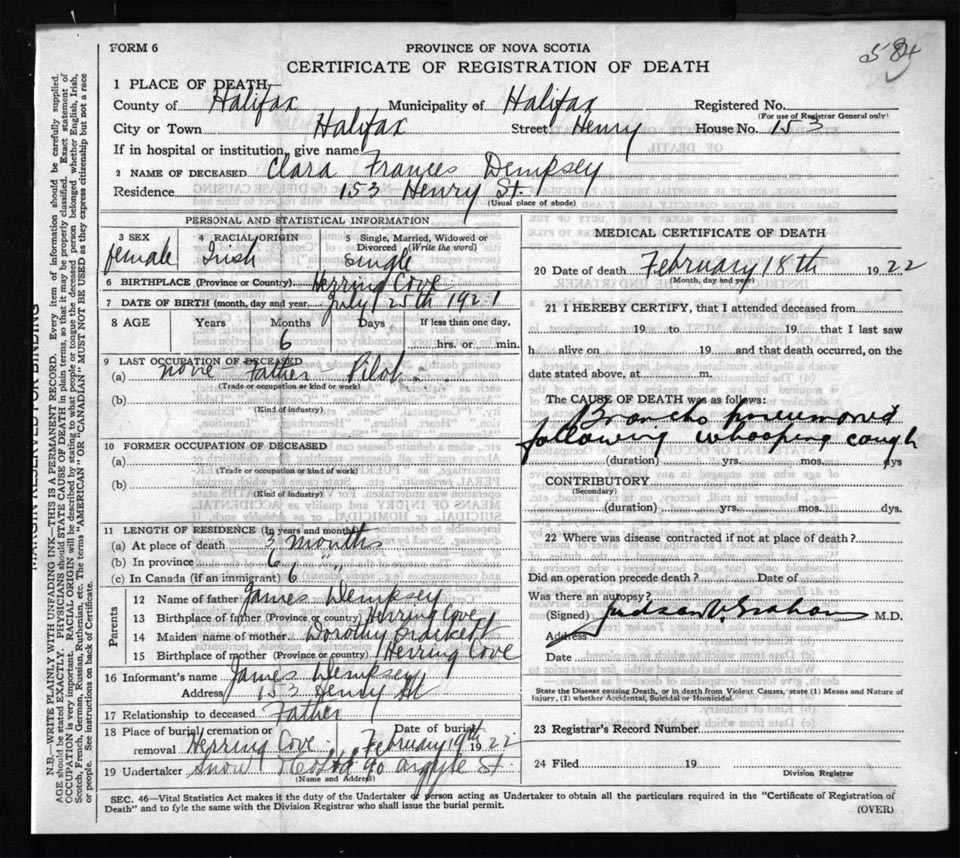 FORM 6
584
PROVINCE OF NOVA SCOTIA
CERTIFICATE OF REGISTRATION OF DEATH
1 PLACE OF DEATH—
County of Halifax Municipality of Halifax Registered No.
(For use of Registrar General only)
City or Town Halifax Street Henry House No. 153
If in hospital or institution, give name
2 NAME OF DECEASED Clara Frances Dempsey
Residence 153 Henry St.
(Usual place of abode)
PERSONAL AND STATISTICAL INFORMATION
3 SEX 4 RACIAL ORIGIN 5 Single, Married, Widowed or Divorced (Write the word)
female Irish Single
6 BIRTHPLACE (Province or Country) Herring Cove
7 DATE OF BIRTH (month, day and year) July 25th 1921
8 AGE Years Months Days If less than one day,
6 hrs. or min.
9 LAST OCCUPATION OF DECEASED
(a) none Father Pilot
(Trade or occupation or kind of work)
(b)
(Kind of industry)
10 FORMER OCCUPATION OF DECEASED
(a)
(Trade or occupation or kind of work)
(b)
(Kind of industry)
11 LENGTH OF RESIDENCE (In years and months)
(a) At place of death 3 months
(b) In province 6 "
(c) In Canada (if an immigrant) 6
Parents
12 Name of father James Dempsey
13 Birthplace of father (Province or country) Herring Cove
14 Maiden name of mother Dorothy
15 Birthplace of mother (Province or country) Herring Cove
16 Informant's name James Dempsey
Address 153 Henry St
17 Relationship to deceased Father
18 Place of burial, cremation or Date of burial
removal Herring Cove February 19th 1922
19 Undertaker Snow 90 Argyle St.
(Name and Address)
MEDICAL CERTIFICATE OF DEATH
20 Date of death February 18th 1922
(Month, day and year)
21 I HEREBY CERTIFY, that I attended deceased from
19 to 19 that I last saw
h alive on 19 and that death occurred, on the
date stated above, at m.
The CAUSE OF DEATH was as follows:
Broncho pneumonia
following whooping cough
(duration) yrs. mos. dys
CONTRIBUTORY
(Secondary)
(duration) yrs. mos. dys.
22 Where was disease contracted if not at place of death?
Did an operation precede death? Date of
Was there an autopsy?
(Signed) Judson V. Graham M.D.
Address
Date
State the Disease causing Death, or in death from Violent Causes, state (1) Means and Nature of
Injury, (2) whether Accidental, Suicidal or Homicidal.
23 Registrar's Record Number
24 Filed 19
Division Registrar
SEC. 46—Vital Statistics Act makes it the duty of the Undertaker or person acting as Undertaker to obtain all the particulars required in the "Certificate of Registration of
Death" and to fyle the same with the Division Registrar who shall issue the burial permit.
(OVER)
MARGIN RESERVED FOR BINDING
N.B.—WRITE PLAINLY WITH UNFADING INK—THIS IS A PERMANENT RECORD. Every item of information should be carefully supplied.
AGE should be stated EXACTLY. PHYSICIANS should STATE CAUSE OF DEATH in plain terms, so that it may be properly classified. Exact statement of
OCCUPATION is very important. RACIAL ORIGIN will be described by stating to what people or tongue the deceased person belonged whether English, Irish,
Scotch, French, German, Russian, Ruthenian, etc. The terms "AMERICAN" OR "CANADIAN" MUST NOT BE USED as they express citizenship but not a race
or people. See instructions on back of Certificate.